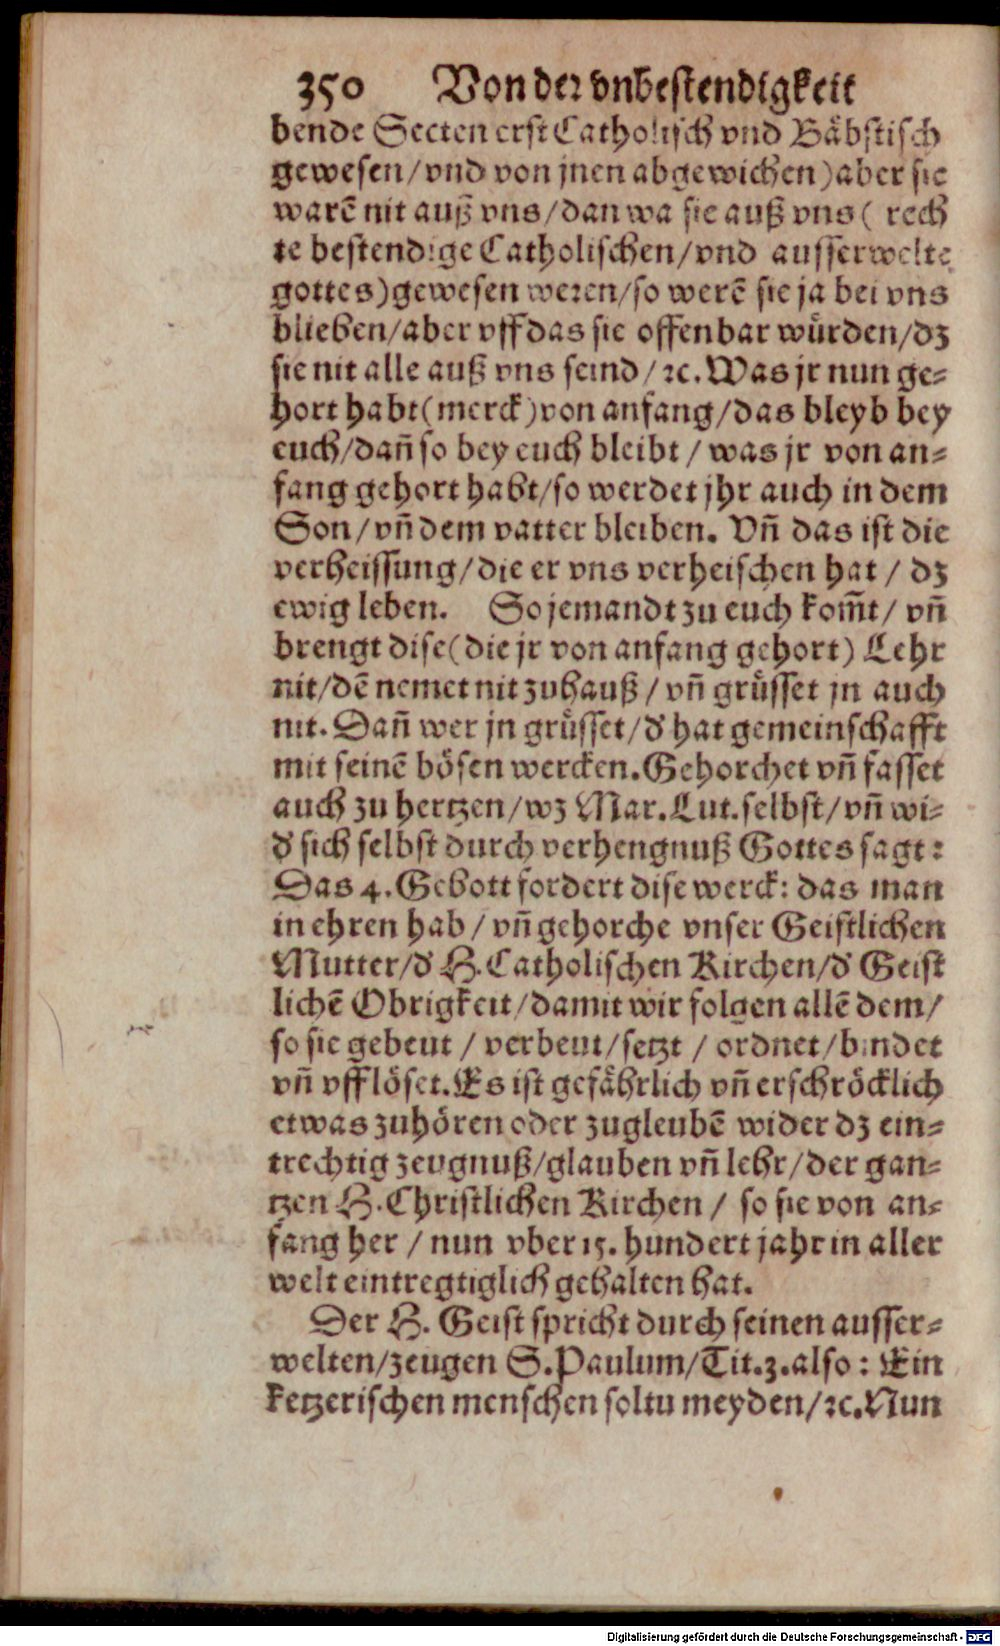 350 Von der vnbestendigkeit
bende Secten erst Catholisch vnd Bäbstisch
gewesen/vnd von jnen abgewichen) aber sie
warē nit auß vns/dan wa sie auß vns ( rech
te bestendige Catholischen/vnd ausserwelte
gottes) gewesen weren/so werē sie ja bei vns
blieben/aber vff das sie offenbar würden/dz
sie nit alle auß vns seind/ꝛc. Was jr nun ge-
hort habt (merck) von anfang/das bleyb bey
euch/dañ so bey euch bleibt / was jr von an-
fang gehort habt/so werdet jhr auch in dem
Son/vñ dem vatter bleiben. Vñ das ist die
verheissung/die er vns verheischen hat / dz
ewig leben. So jemandt zu euch kom̃t/ vñ
brengt dise (die jr von anfang gehort) Lehr
nit/dē nemet nit zuhauß / vñ grüsset jn auch
nit. Dañ wer jn grüsset/d' hat gemeinschafft
mit seinē bösen wercken. Gehorchet vñ fasset
auch zu hertzen/wz Mar. Lut. selbst/vñ wi-
d' sich selbst durch verhengnuß Gottes sagt:
Das 4. Gebott fordert dise werck: das man
in ehren hab / vñ gehorche vnser Geistlichen
Mutter/d' H. Catholischen Kirchen/d' Geist
lichē Obrigkeit/damit wir folgen allē dem/
so sie gebeut / verbeut/setzt / ordnet/bindet
vñ vfflöset. Es ist gefährlich vñ erschröcklich
etwas zuhören oder zugleubē wider dz ein-
trechtig zeugnuß/glauben vñ lehr/der gan-
tzen H. Christlichen Kirchen / so sie von an-
fang her / nun vber 15. hundert jahr in aller
welt eintregtiglich gehalten hat.
Der H. Geist spricht durch seinen ausser-
welten/zeugen S. Paulum/Tit. 3. also: Ein
ketzerischen menschen soltu meyden/ꝛc. Nun
Digitalisierung gefördert durch die Deutsche Forschungsgemeinschaft - DFG